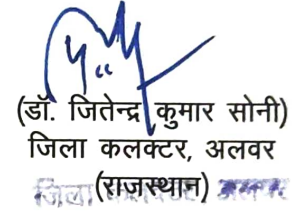 (डॉ. जितेन्द्र कुमार सोनी)
जिला कलक्टर, अलवर
(राजस्थान)
जिला अलवर